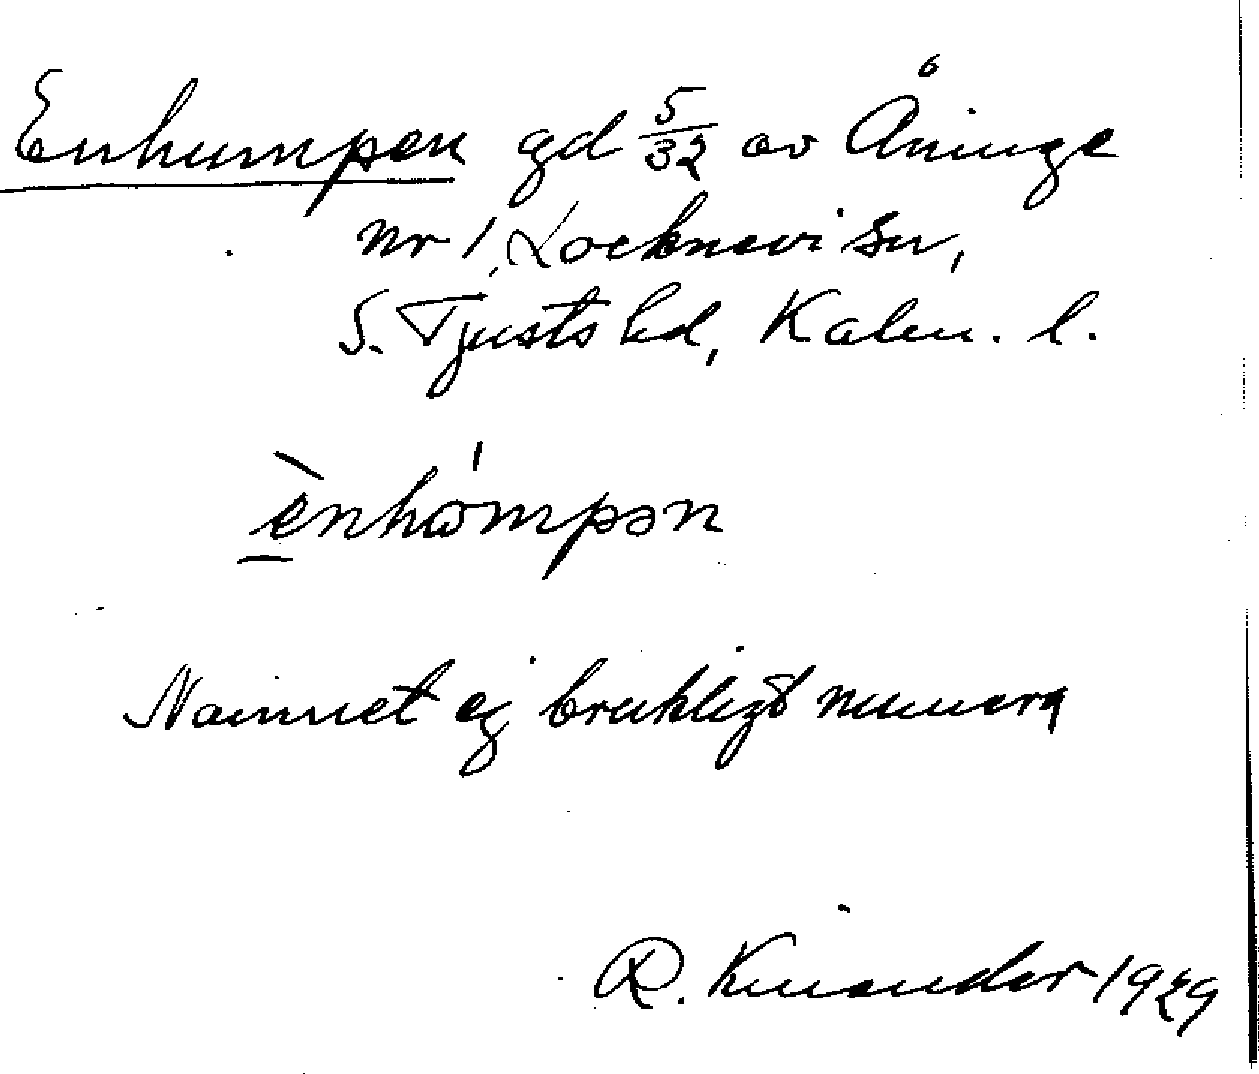 Enhumpen gd 5/32 av Åninge
nr 1, Locknevi sn,
S. Tjusts hd, Kalm. l.
ènhω̍mpən
Namnet ej brukligt numera
R. Kinander 1929